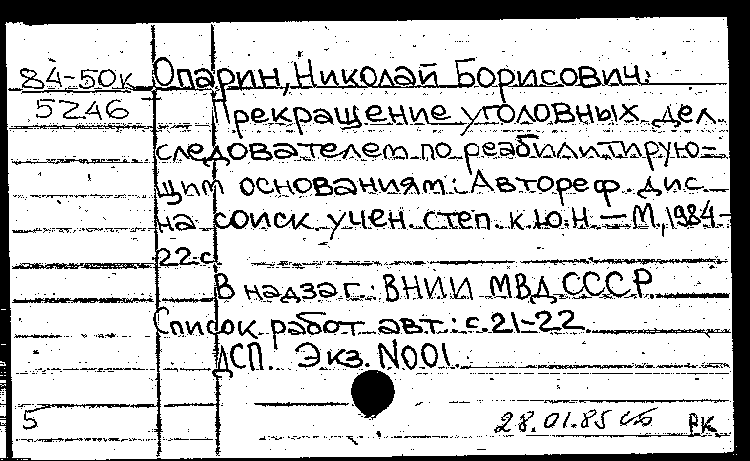 84-50к Опарин, Николай Борисович.
5246 Прекращение уголовных дел
следователем по реабилитирую-
щим основаниям: Автореф. дис.
на соиск. учен. степ. к.ю.н. — М., 1984-
22 с.
В надзаг.: ВНИИ МВД СССР
Список работ авт.: с. 21-22
ДСП. Экз. N001.
5 28.01.85 РК